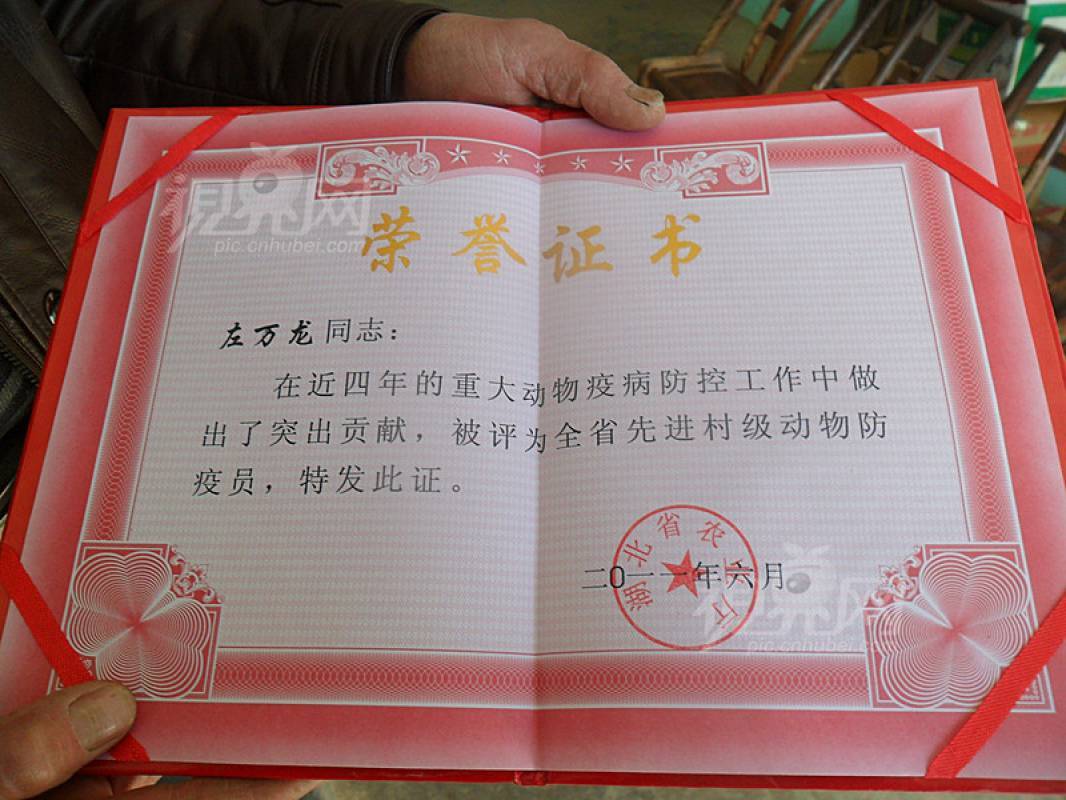 荣誉证书
左万龙同志：
在近四年的重大动物疫病防控工作中做
出了突出贡献，被评为全省先进村级动物防
疫员，特发此证。
湖北省农业厅
二0一一年六月
視界网
pic.cnhubei.com
pic.cnhubei.com